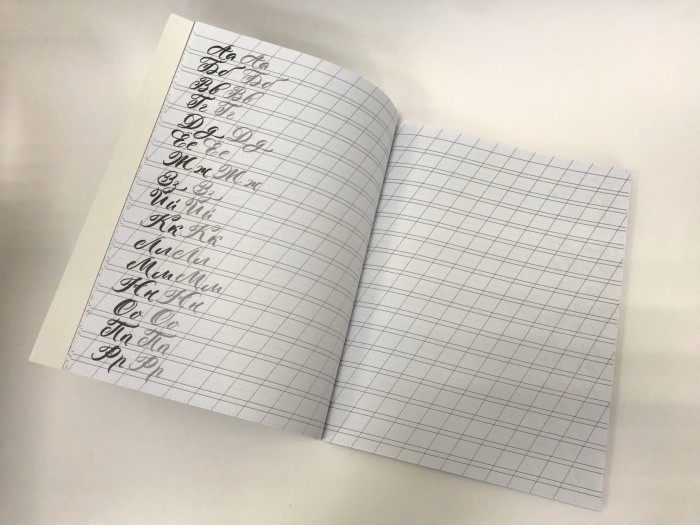 Аа Аа
Бб Бб
Вв Вв
Гг Гг
Дд Дд
Ее Ее
Жж Жж
Зз Зз
Йй Йй
Кк Кк
Лл Лл
Мм Мм
Нн Нн
Оо Оо
Пп Пп
Рр Рр